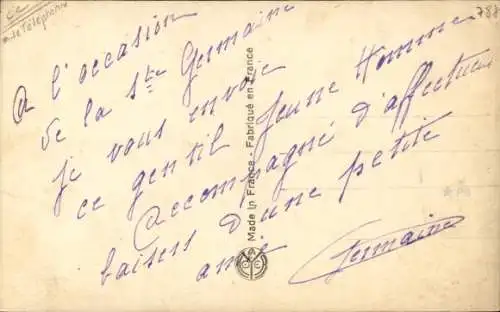 cc
Téléphone
788
A l'occasion
de la Ste Germaine
je vous envoie
ce gentil Jeune Homme
Accompagné d'affectueux
baisers d'une petite
amie
Germaine
Made in France - Fabriqué en France